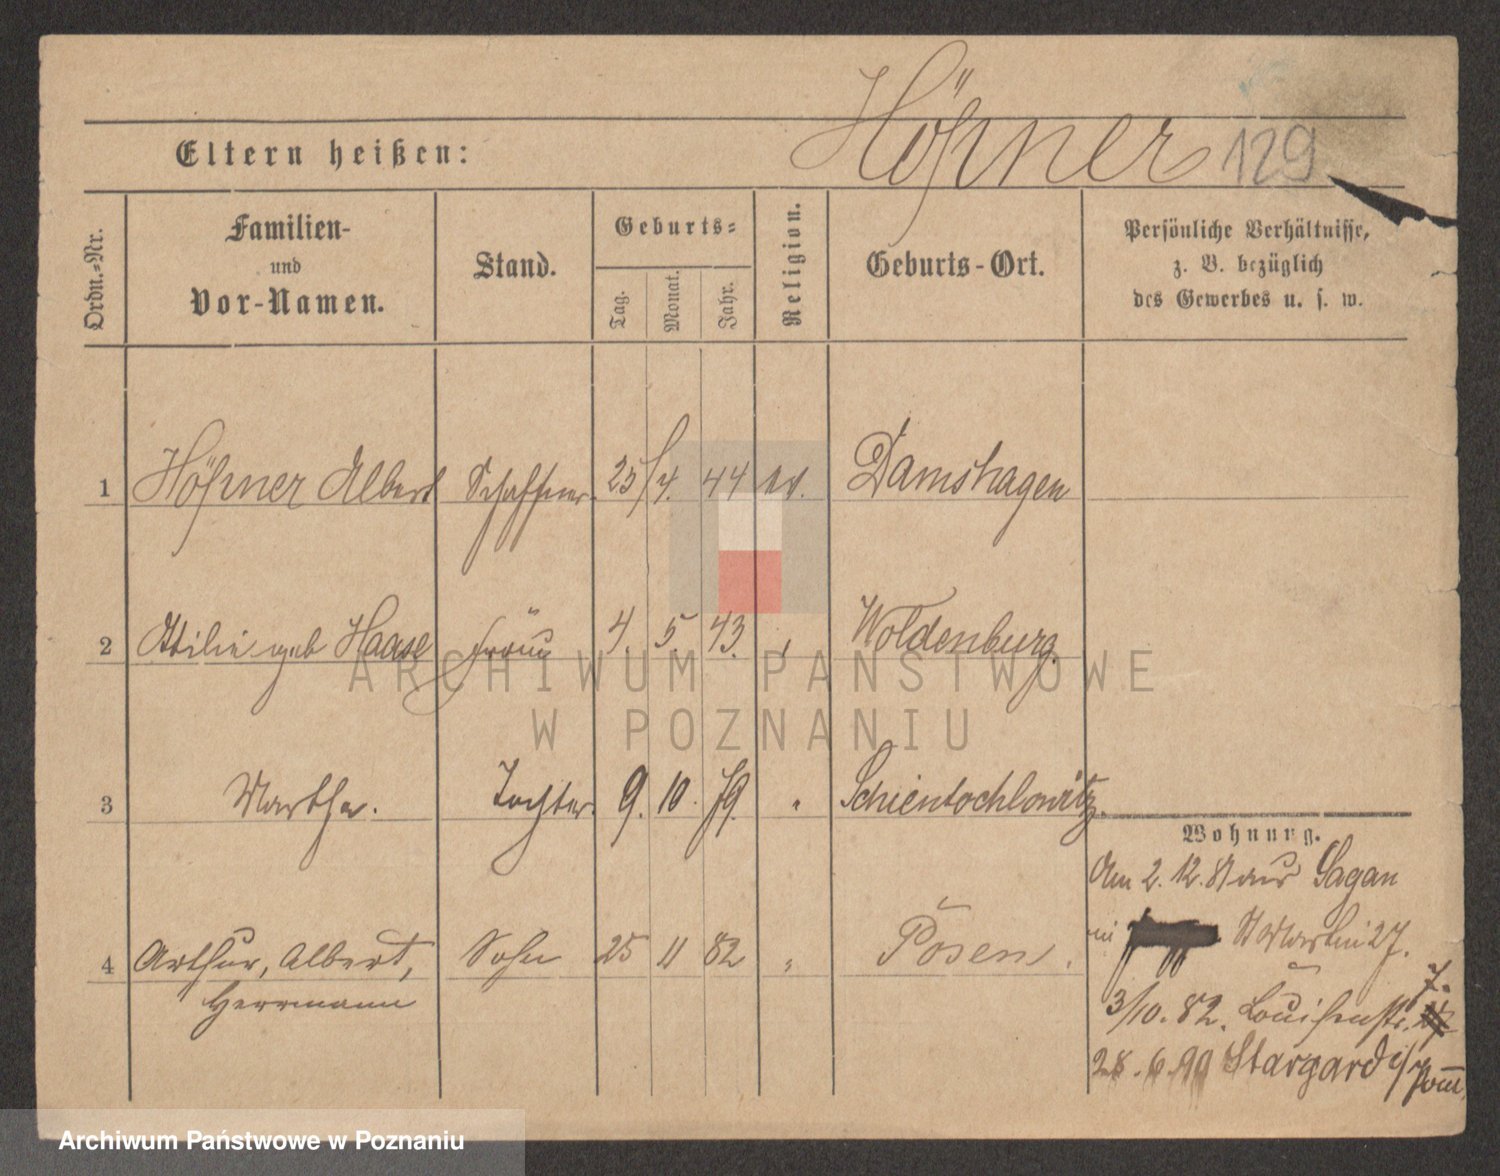 Höhner 129
Eltern heißen:
Ordn.-Nr.
Familien-
und
Vor-Namen.
Stand.
Geburts-
Tag.
Monat.
Jahr.
Religion.
Geburts-Ort.
Persönliche Verhältnisse,
z. B. bezüglich
des Gewerbes u. s. w.
1 Höhner Albert Schaffner 25/4. 44 ev. Damshagen
2 Ottilie geb Haase Frau 4. 5. 43. " Woldenburg.
3 Martha. Tochter. 9. 10. 79. " Schientochlowitz.
Wohnung.
Am 2. 12. 81 aus Sagan
in St Martin 27.
4 Arthur, Albert, Sohn 25 11 82 " Posen.
Herrmann
7.
3/10. 82. Louisenstr.
28. 6. 90 Stargard i/Pom
ARCHIWUM PAŃSTWOWE
W POZNANIU
Archiwum Państwowe w Poznaniu